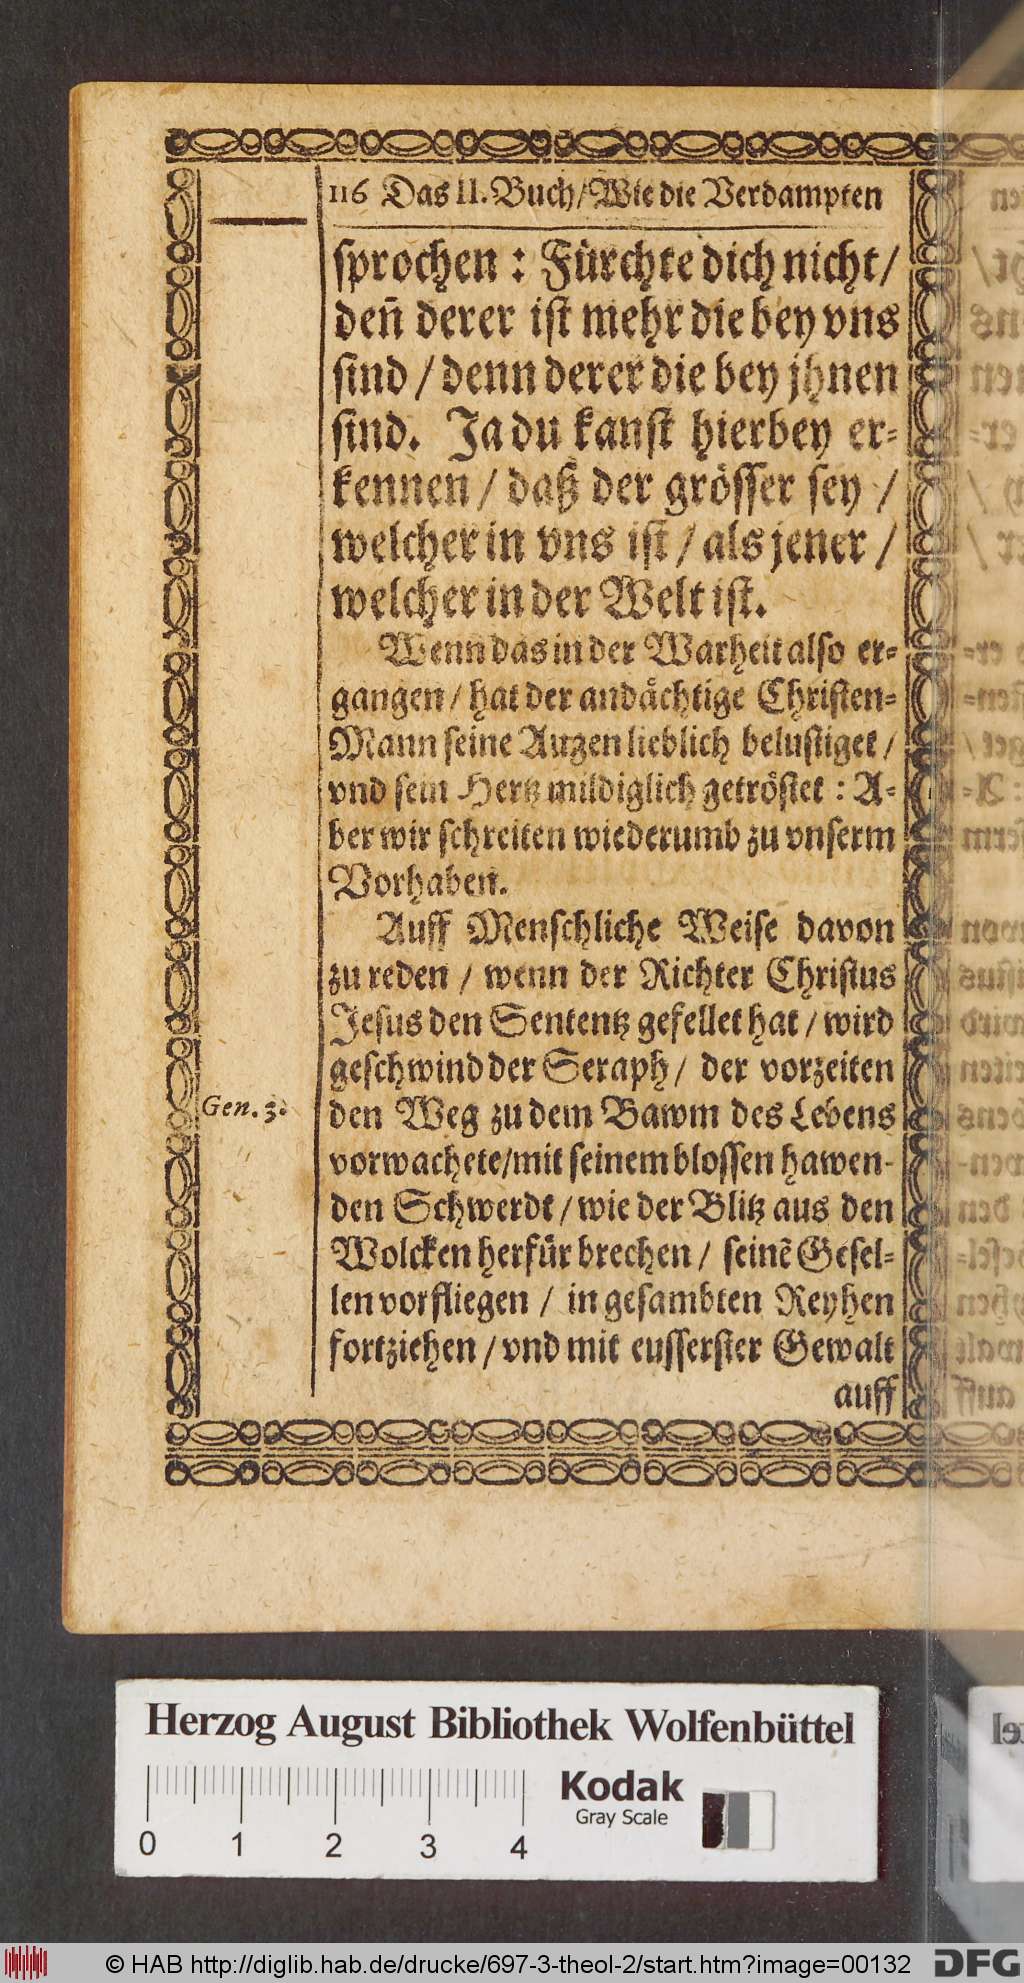 116 Das II. Buch/Wie die Verdampten
sprochen : Fürchte dich nicht/
deñ derer ist mehr die bey vns
sind / denn derer die bey jhnen
sind. Ja du kanst hierbey er-
kennen / daß der grösser sey /
welcher in vns ist / als jener /
welcher in der Welt ist.
Wenn das in der Warheit also er-
gangen / hat der andächtige Christen-
Mann seine Augen lieblich belustiget /
vnd sein Hertz mildiglich getröstet : A-
ber wir schreiten wiederumb zu vnserm
Vorhaben.
Auff Menschliche Weise davon
zu reden / wenn der Richter Christus
Jesus den Sententz gefellet hat / wird
geschwind der Seraph / der vorzeiten
Gen. 3.
den Weg zu dem Bawm des Lebens
vorwachete/mit seinem blossen hawen-
den Schwerdt / wie der Blitz aus den
Wolcken herfür brechen / seinẽ Gesel-
len vorfliegen / in gesambten Reyhen
fortziehen / vnd mit eusserster Gewalt
auff
Herzog August Bibliothek Wolfenbüttel
Kodak
Gray Scale
0 1 2 3 4
© HAB http://diglib.hab.de/drucke/697-3-theol-2/start.htm?image=00132
DFG